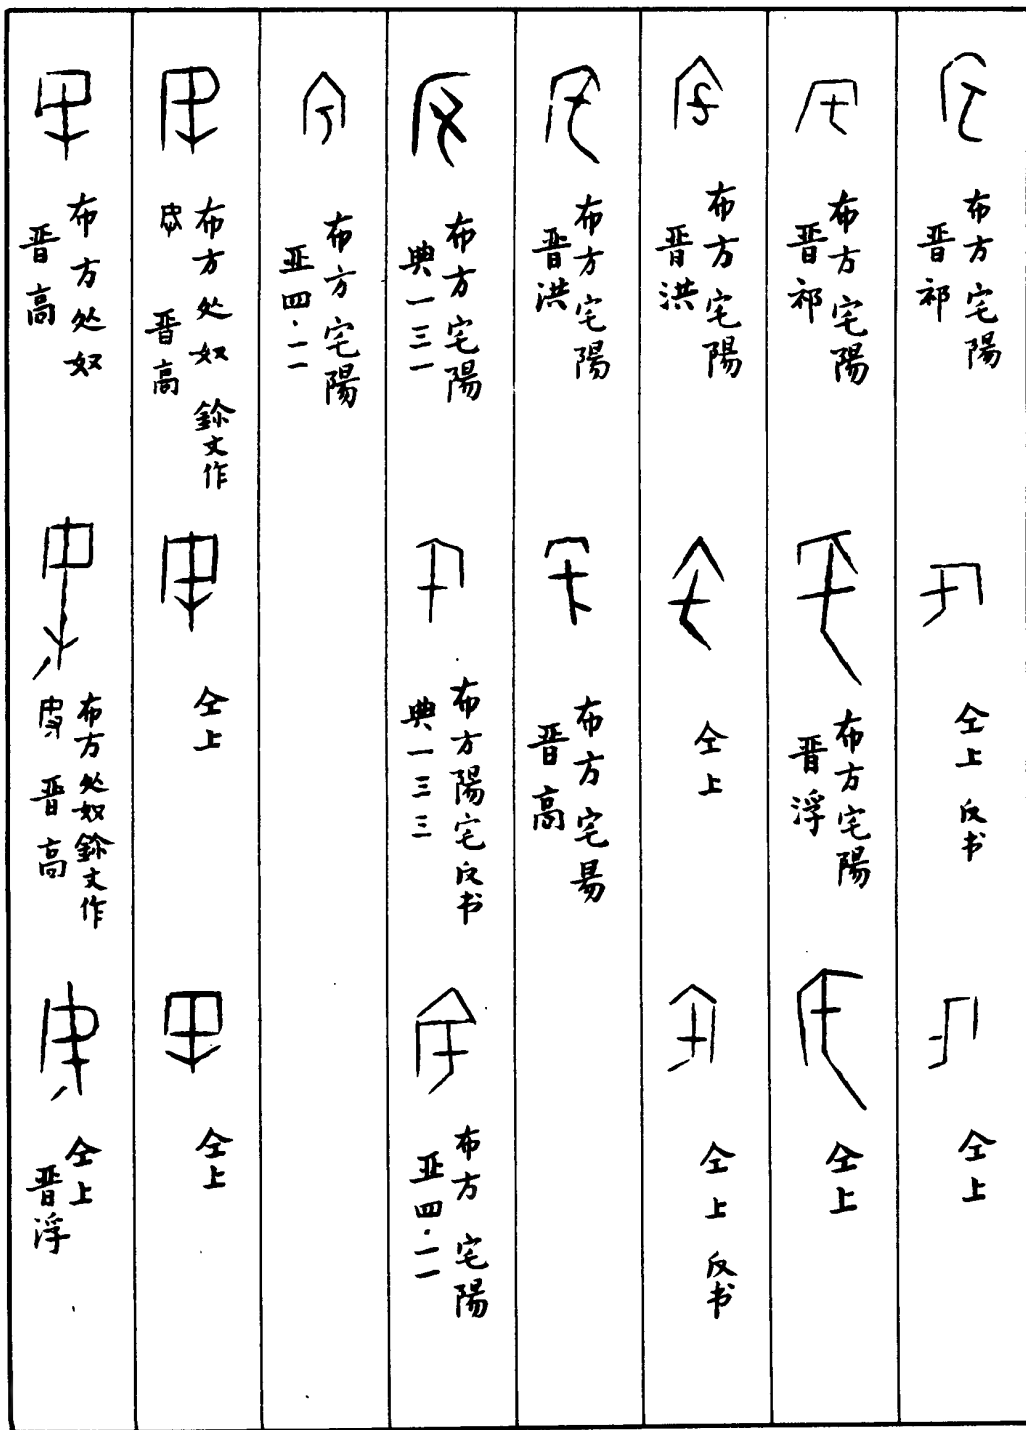 布方宅陽
晋祁
仝上 反书
仝上
布方宅陽
晋祁
布方宅陽
晋浮
仝上
布方宅陽
晋洪
仝上
仝上 反书
布方宅陽
晋洪
布方宅昜
晋高
布方宅陽
典一三一
布方陽宅反书
典一三三
布方宅陽
亚四·一一
布方宅陽
亚四·一一
布方处奴 鉨文作
晋高
仝上
仝上
布方处奴
晋高
布方处奴鉨文作
晋高
仝上
晋浮